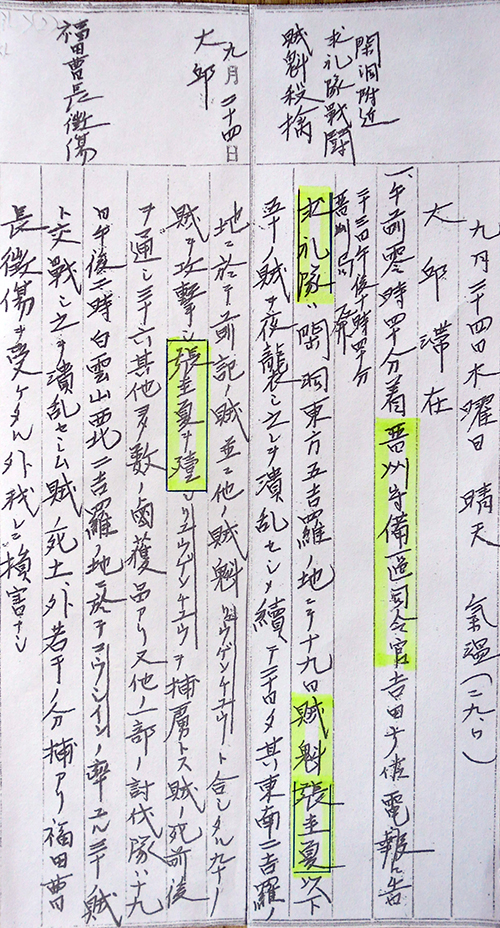 閑洞附近
求礼隊戦闘
賊魁殺擒
九月二十四日水曜日 晴天 氣温(二九、〇)
大邱滞在
一、午前零時四十分着晋州守備區司令官吉田少佐電報ニ云
午後十時四十分
晋州局
求礼隊ハ閑洞東方五吉羅ノ地ニテ十九日賊魁張圭夏以下
五十ノ賊ヲ夜襲シ之レヲ潰乱セシメ續テ二十日夕其東南二吉羅ノ
九月二十四日
大邱
福田曹長微傷
地ニ於テ前記ノ賊並ニ他ノ賊魁リュウゲンケユウノ合シタル九十ノ
賊ヲ攻撃シ張圭夏ヲ殪シリュウゲンケユウヲ捕虜トス賊ノ死前後
ヲ通シ三十六其他多数ノ鹵獲品アリ又他ノ一部ノ討伐隊ハ十九
日午後二時白雲山西北二吉羅ノ地ニ於テコウシインノ率ユル三十ノ賊
ト交戦シ之ヲ潰乱セシム賊ノ死七外若干ノ分捕アリ福田曹
長微傷ヲ受ケタル外我レニ損害ナシ